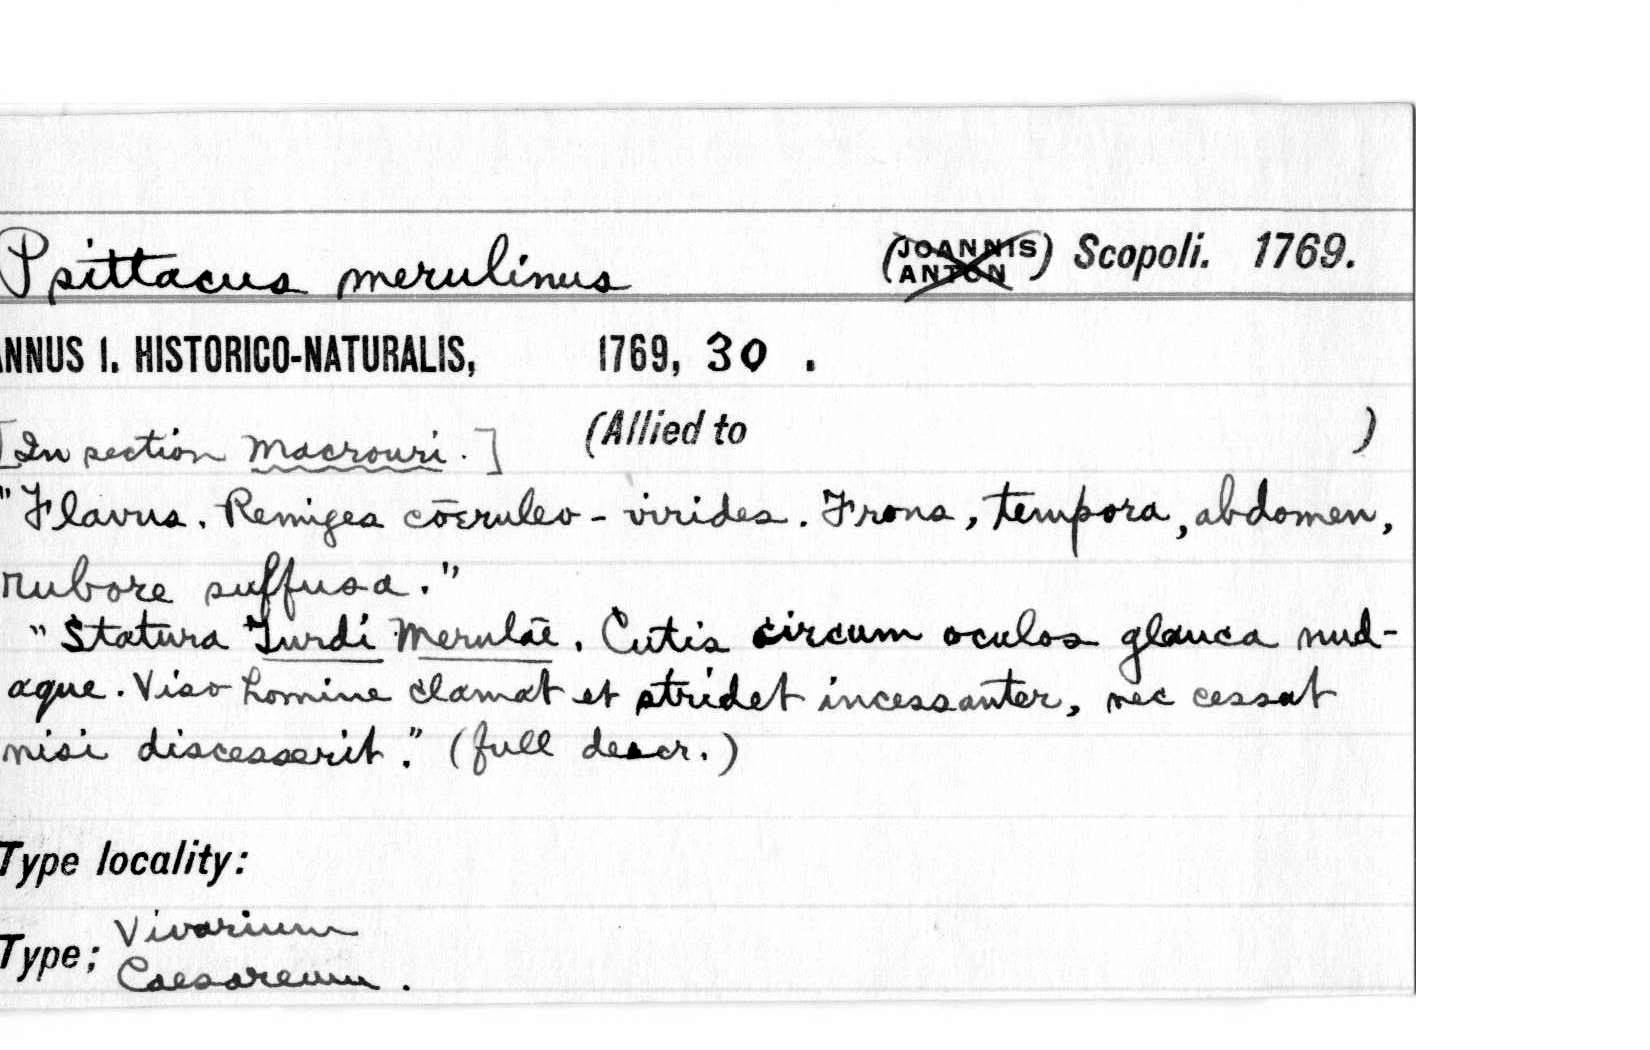 Psittacus merulinus (JOANNIS ANTON) Scopoli. 1769.
ANNUS I. HISTORICO-NATURALIS, 1769, 30 .
[In section Macrouri.] (Allied to )
"Flavus. Remiges cœruleo-virides. Frons, tempora, abdomen,
rubore suffusa."
"Statura Turdi Merulæ. Cutis circum oculos glauca nud-
aque. Viso homine clamat et stridet incessanter, nec cessat
nisi discesserit." (full descr.)
Type locality:
Type; Vivarium
Caesareum.